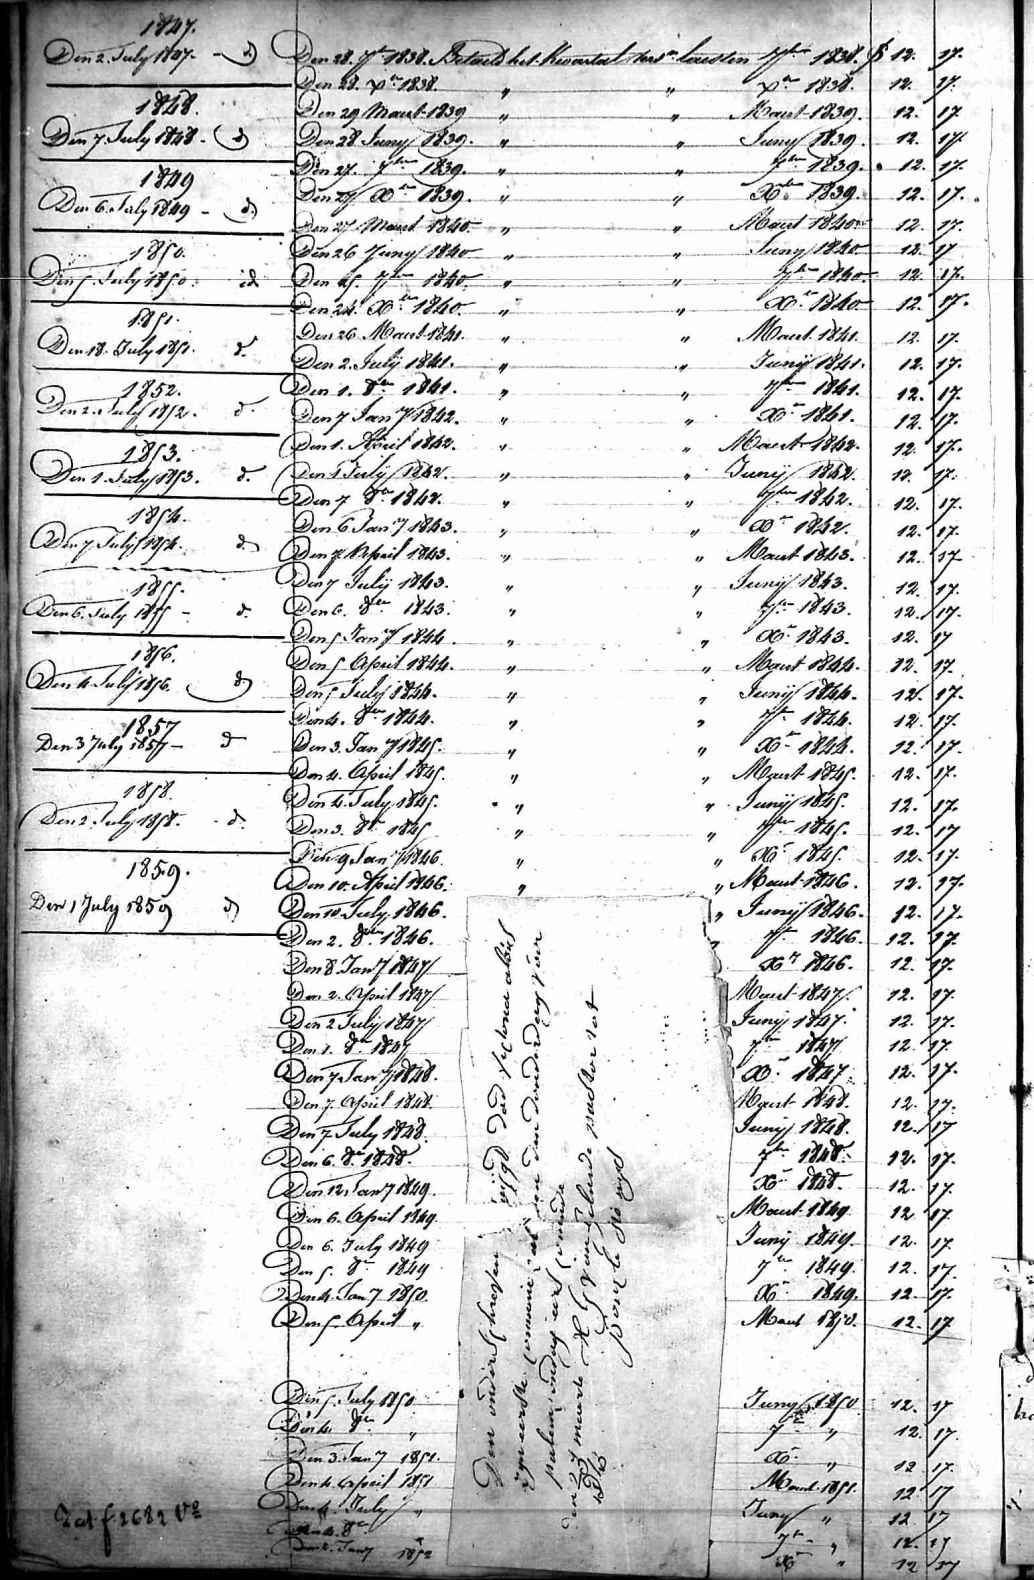 1847.
Den 2. July 1847. - d
1848.
Den 7 July 1848. - d
1849
Den 6. July 1849 - d.
1850.
Den 5. July 1850. id
1851.
Den 18. July 1851. d.
1852.
Den 2. July 1852. d.
1853.
Den 1. July 1853. d.
1854.
Den 7 July 1854. d
1855.
Den 6. July 1855 - d.
1856.
Den 4. July 1856. d
1857
Den 3 July 1857 - d
1858.
Den 2. July 1858. - d.
1859.
Den 1 July 1859 d
Den 28. 7br 1838. Betaeld het kwartael 7br 1838. f 12. 17.
Den 28. Xr 1838. " " Xr 1838. 12. 17.
Den 29 Maert 1839 " " Maert 1839. 12. 17
Den 28 Juny 1839. " " Juny 1839. 12. 17.
Den 27. 7ber 1839. " " 7ber 1839. 12. 17.
Den 27 Xber 1839. " " Xber 1839. 12. 17.
Den 27 Maert 1840. " " Maert 1840. 12. 17.
Den 26 Juny 1840 " " Juny 1840. 12. 17
Den 25. 7ber 1840. " " 7ber 1840. 12. 17.
Den 24. Xber 1840. " " Xr 1840. 12. 17.
Den 26. Maert 1841. " " Maert 1841. 12. 17.
Den 2. July 1841. " " Juny 1841. 12. 17.
Den 1. 8ber 1841. " " 7ber 1841. 12. 17.
Den 7 Jany 1842. " " Xr 1841. 12. 17.
Den 1. April 1842. " " Maert 1842. 12. 17.
Den 1 July 1842. " " Juny 1842. 12. 17.
Den 7 8er 1842. " " 7ber 1842. 12. 17.
Den 6 Jany 1843. " " Xr 1842. 12. 17.
Den 7 April 1843. " " Maert 1843. 12. 17
Den 7 July 1843. " " Juny 1843. 12. 17.
Den 6. 8er 1843. " " 7r 1843. 12. 17.
Den 5 Jany 1844. " " Xr 1843. 12. 17
Den 5 April 1844. " " Maert 1844. 12. 17.
Den 5 July 1844. " " Juny 1844. 12. 17.
Den 4. 8er 1844. " " 7r 1844. 12. 17
Den 3. Jany 1845. " " Xr 1844. 12. 17
Den 4. April 1845. " " Maert 1845. 12. 17.
Den 4. July 1845. " " Juny 1845. 12. 17
Den 3. 8r 1845 " " 7ber 1845. 12. 17
Den 9 Jany 1846. " " Xr 1845. 12. 17.
Den 10. April 1846. " " Maert 1846. 12. 17.
Den 10. July 1846. " Juny 1846. 12. 17.
Den 2. 8ber 1846. " 7r 1846. 12. 17.
Den 8 Jany 1847 Xr 1846. 12. 17.
Den 2. April 1847 Maert 1847. 12. 17.
Den 2 July 1847 Juny 1847. 12. 17.
Den 1. 8r 1847 7r 1847 12. 17.
Den 7 Jany 1848. Xr 1847 12. 17.
Den 7. April 1848. Maert 1848. 12. 17.
Den 7 July 1848. Juny 1848. 12. 17
Den 6. 8r 1848. 7r 1848. 12. 17.
Den 12 Jany 1849. Xr 1848. 12. 17.
Den 6. April 1849. Maert 1849. 12. 17
Den 6. July 1849 Juny 1849. 12. 17
Den 5. 8r 1849 7r 1849. 12. 17.
Den 4. Jany 1850. Xr 1849. 12. 17.
Den 5 April " Maert 1850. 12. 17
Den 5 July 1850 Juny 1850 12. 17
Den 4. 8er " 7r " 12. 17.
Den 3. Jany 1851. Xr " 12 17.
Den 4 April 1851 Maert 1851 12 17
Den 4. July " Juny " 12 17
Den 8er 7r " 12. 17
Den 2. Jany 1852 Xr " 12 17
Den onderschreven
zyn eerste communie
den 27 meerte
pastor tot
f 2682 Vo